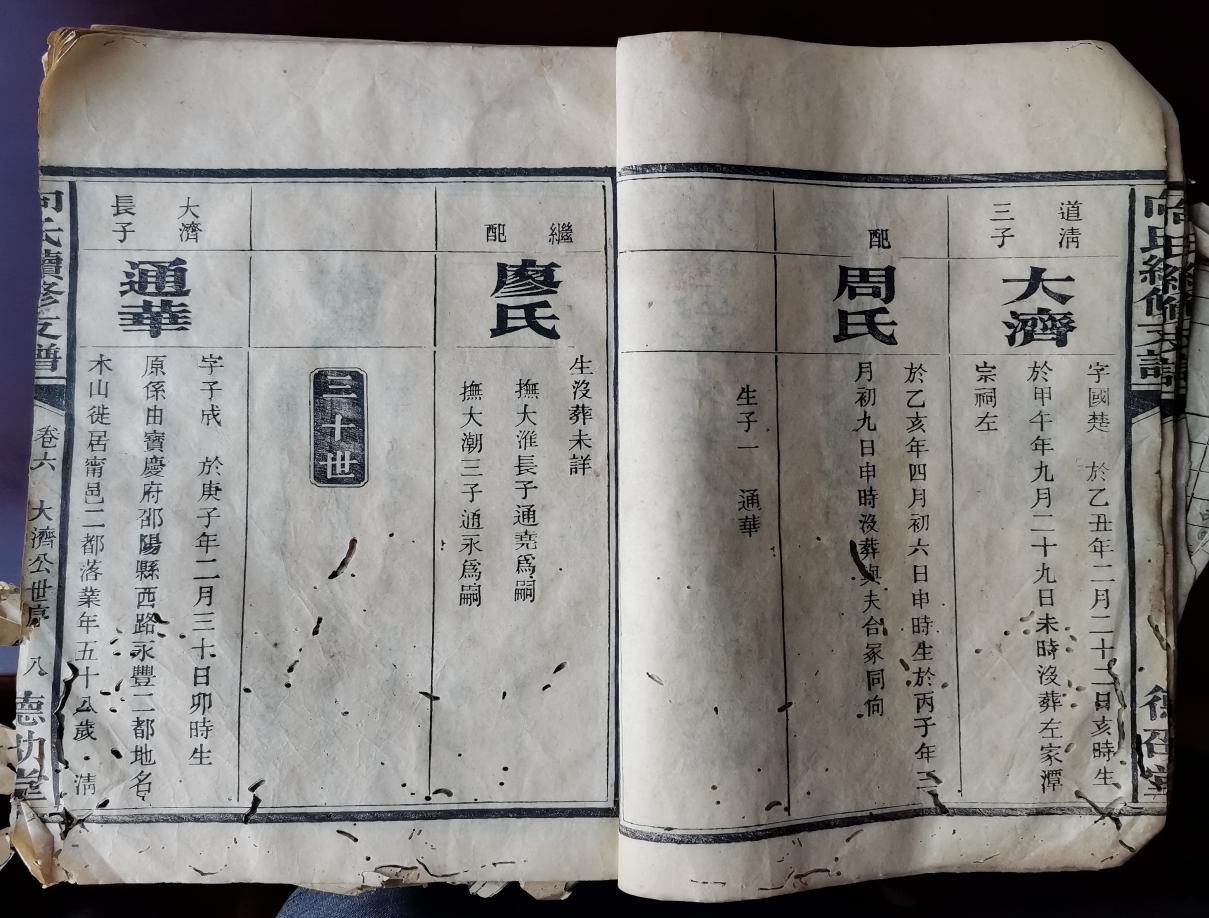 道清
三子
大濟
字國楚 於乙丑年二月二十二日亥時生
於甲午年九月二十九日未時沒葬左家潭
宗祠左
配
周氏
於乙亥年四月初六日申時生於丙子年三
月初九日申時沒葬與夫合冢同向
生子一 通華
繼
配
廖氏
生沒葬未詳
撫大淮長子通堯爲嗣
撫大潮三子通永爲嗣
三十世
大濟
長子
通華
字子成 於庚子年二月三十日卯時生
原係由寶慶府邵陽縣西路永豐二都地名
木山徙居甯邑二都落業年五十八歲 清
氏續修支譜
卷六 大濟公世序 八